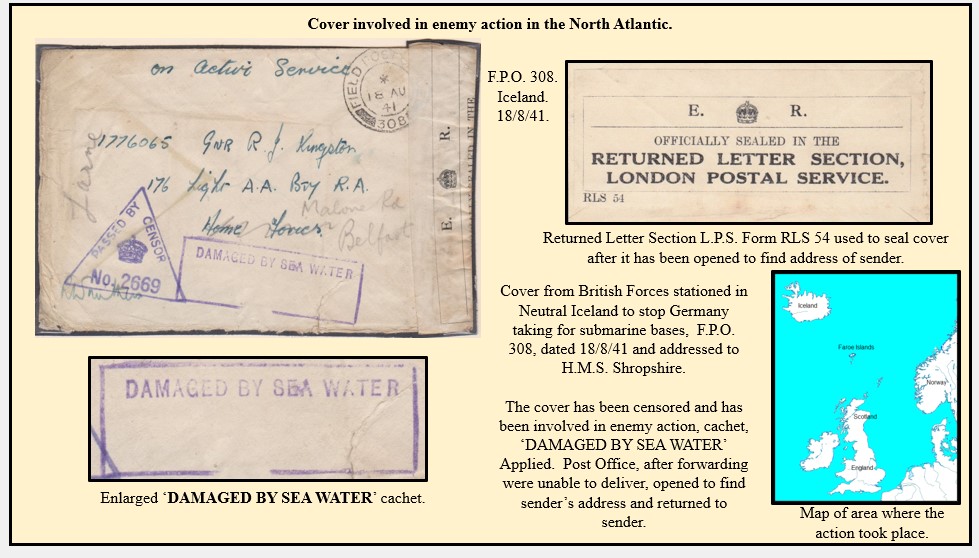 Cover involved in enemy action in the North Atlantic.
on Active Service
FIELD POST
*
18 AU
41
308
1776065 GNR R. J. Kingston
176 Light A.A. Bty R.A.
Home Forces
Larne
Malone Rd
Belfast
PASSED BY CENSOR
No. 2669
DAMAGED BY SEA WATER
E. R.
SEALED IN THE
F.P.O. 308.
Iceland.
18/8/41.
E. R.
OFFICIALLY SEALED IN THE
RETURNED LETTER SECTION,
LONDON POSTAL SERVICE.
RLS 54
Returned Letter Section L.P.S. Form RLS 54 used to seal cover
after it has been opened to find address of sender.
Cover from British Forces stationed in
Neutral Iceland to stop Germany
taking for submarine bases, F.P.O.
308, dated 18/8/41 and addressed to
H.M.S. Shropshire.
The cover has been censored and has
been involved in enemy action, cachet,
‘DAMAGED BY SEA WATER’
Applied. Post Office, after forwarding
were unable to deliver, opened to find
sender’s address and returned to
sender.
DAMAGED BY SEA WATER
Enlarged ‘DAMAGED BY SEA WATER’ cachet.
Iceland
Faroe Islands
Norway
Scotland
England
Map of area where the
action took place.